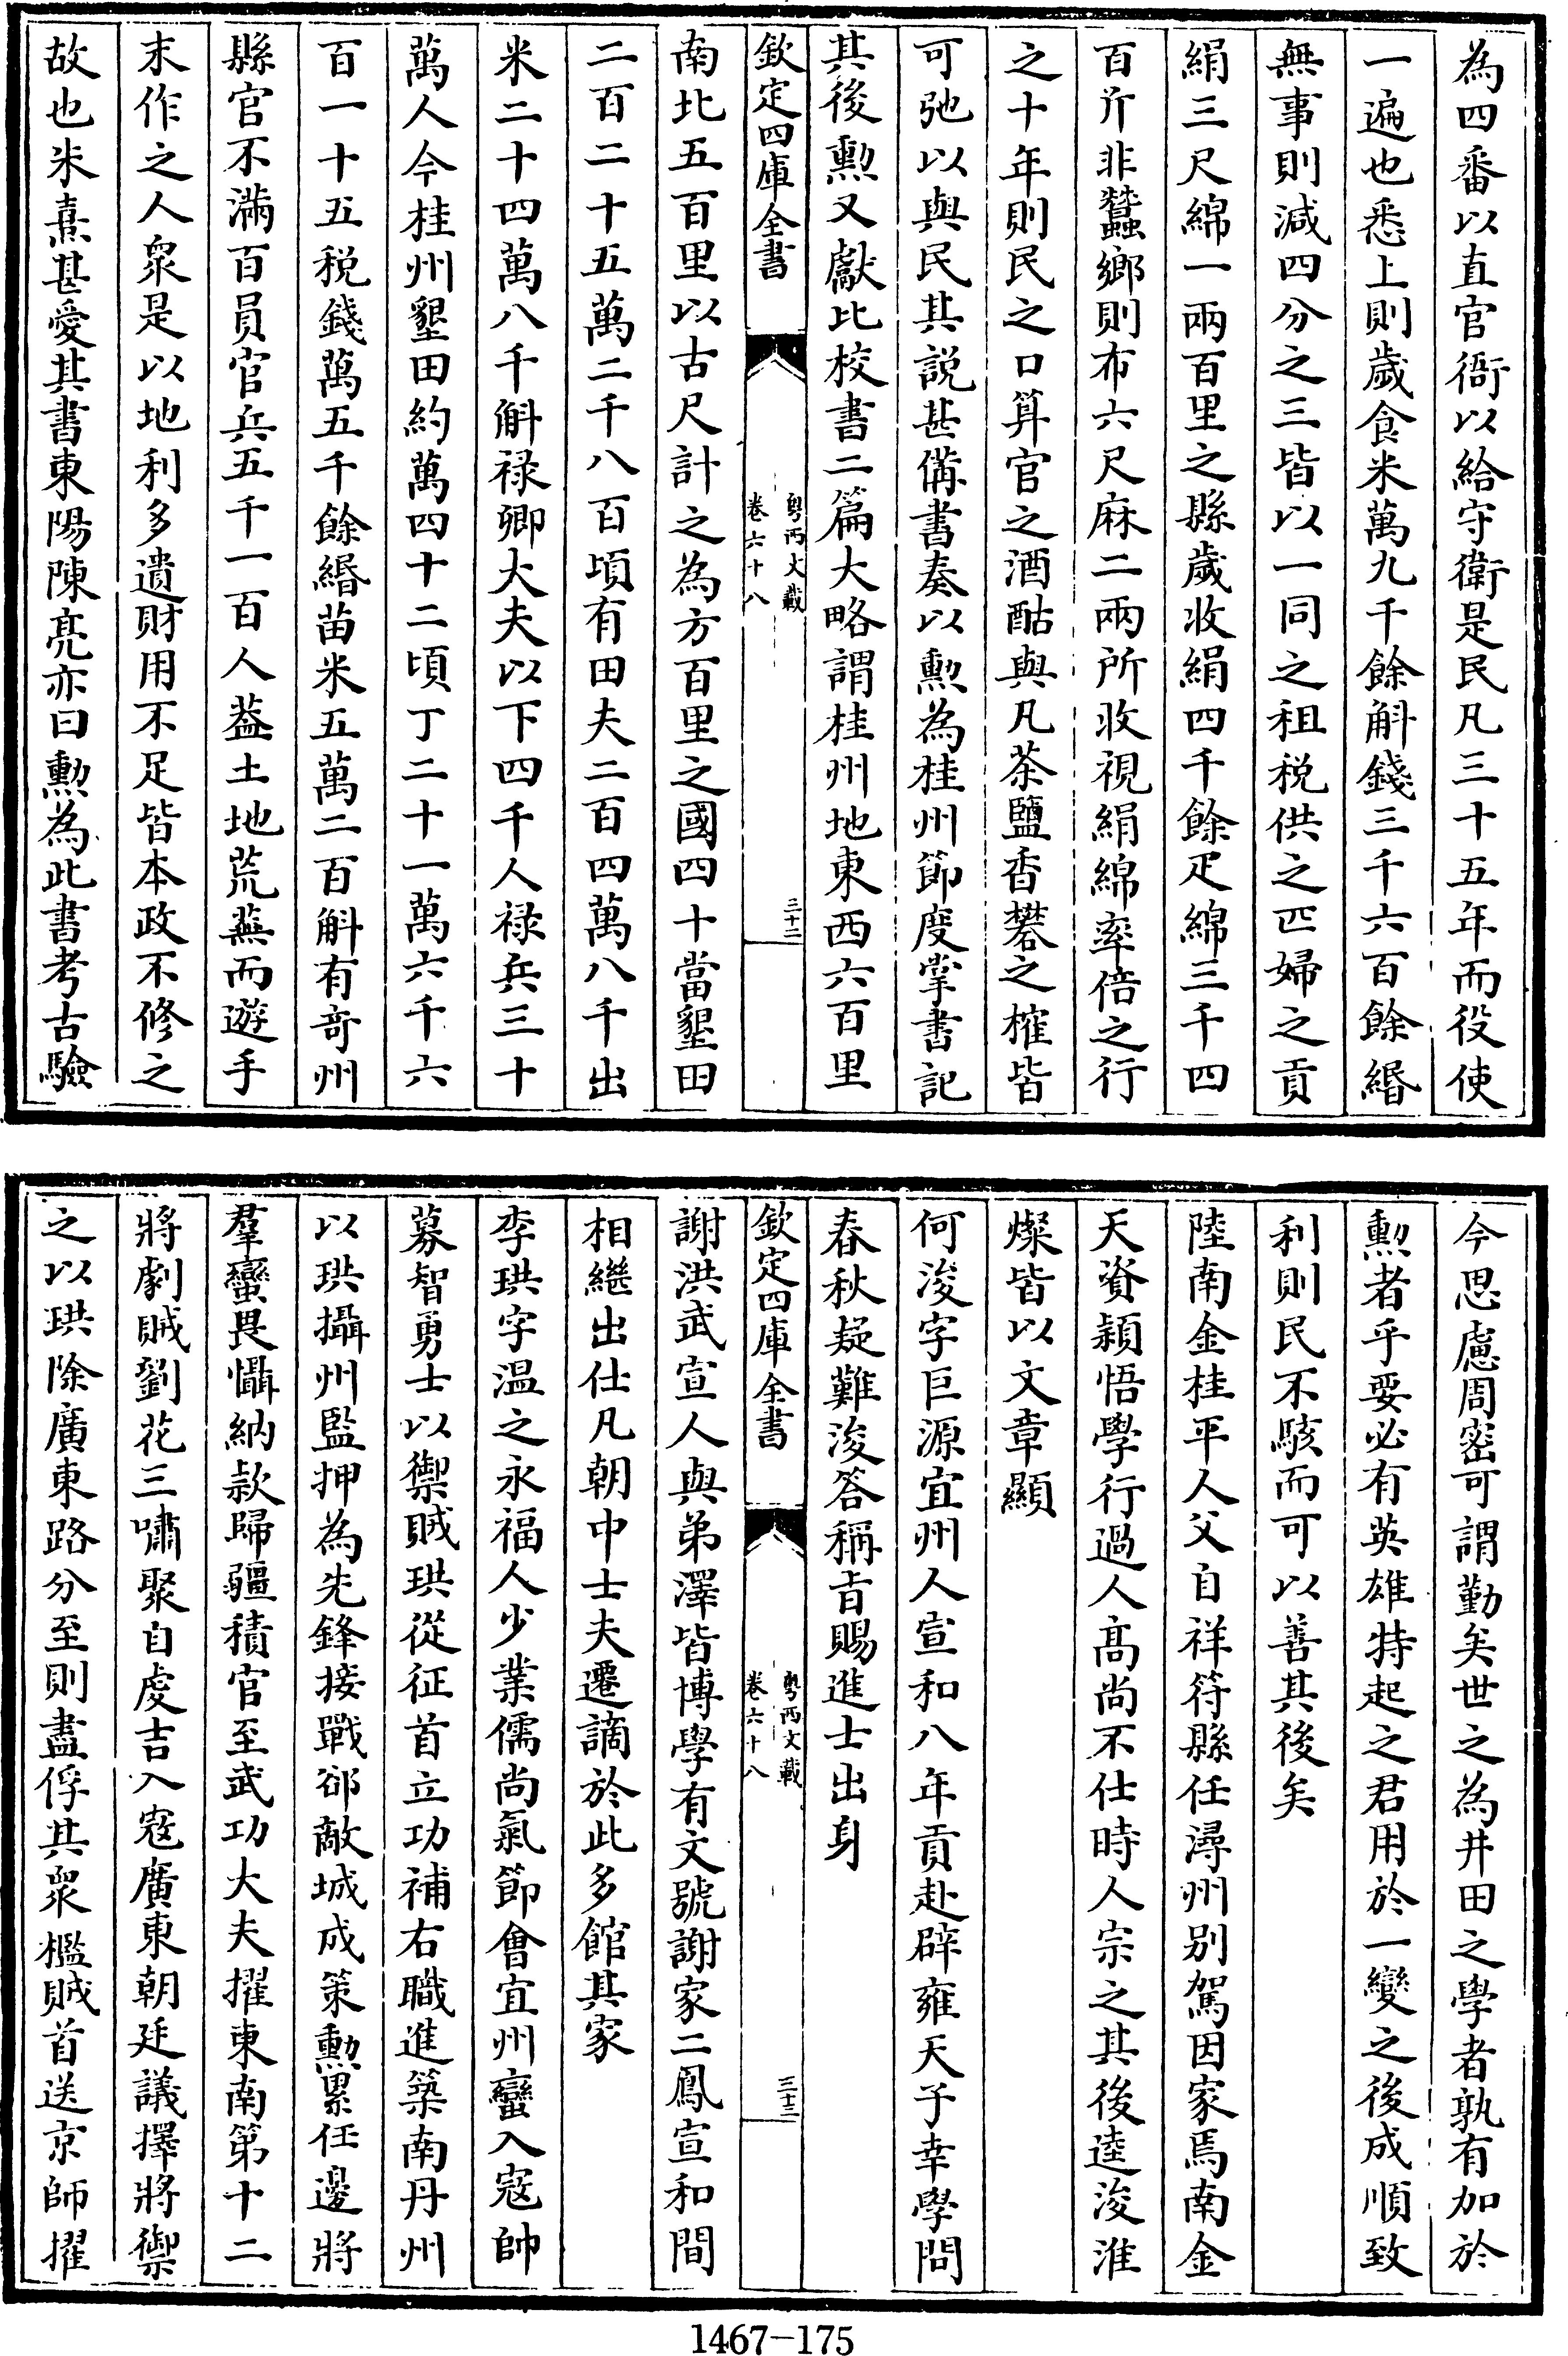 為四番以直官衙以給守衛是民凡三十五年而役使
一遍也悉上則歲食米萬九千餘斛錢三千六百餘緡
無事則減四分之三皆以一同之租税供之匹婦之貢
絹三尺綿一兩百里之縣歲收絹四千餘疋綿三千四
百斤非蠶鄉則布六尺麻二兩所收視絹綿率倍之行
之十年則民之口算官之酒酤與凡茶鹽香礬之榷皆
可弛以與民其説甚備書奏以勲為桂州節度掌書記
其後勲又獻比校書二篇大略謂桂州地東西六百里
欽定四庫全書
粤西文載
卷六十八
三十二
南北五百里以古尺計之為方百里之國四十當墾田
二百二十五萬二千八百頃有田夫二百四萬八千出
米二十四萬八千斛禄卿大夫以下四千人禄兵三十
萬人今桂州墾田約萬四十二頃丁二十一萬六千六
百一十五税錢萬五千餘緡苗米五萬二百斛有奇州
縣官不滿百員官兵五千一百人葢土地荒蕪而遊手
末作之人衆是以地利多遺財用不足皆本政不修之
故也朱熹甚愛其書東陽陳亮亦曰勲為此書考古驗
今思慮周密可謂勤矣世之為井田之學者孰有加於
勲者乎要必有英雄特起之君用於一變之後成順致
利則民不駭而可以善其後矣
陸南金桂平人父自祥符縣任潯州別駕因家焉南金
天資頴悟學行過人髙尚不仕時人宗之其後逵浚淮
燦皆以文章顯
何浚字巨源宜州人宣和八年貢赴辟雍天子幸學問
春秋疑難浚答稱㫖賜進士出身
欽定四庫全書
粤西文載
卷六十八
三十三
謝洪武宣人與弟澤皆博學有文號謝家二鳳宣和間
相繼出仕凡朝中士夫遷謫於此多館其家
李珙字温之永福人少業儒尚氣節會宜州蠻入寇帥
募智勇士以禦賊珙從征首立功補右職進築南丹州
以珙攝州監押為先鋒接戰郤敵城成策勲累任邊將
羣蠻畏懾納款歸疆積官至武功大夫擢東南第十二
將劇賊劉花三嘯聚自虔吉入寇廣東朝廷議擇將禦
之以珙除廣東路分至則盡俘其衆檻賊首送京師擢
1467-175